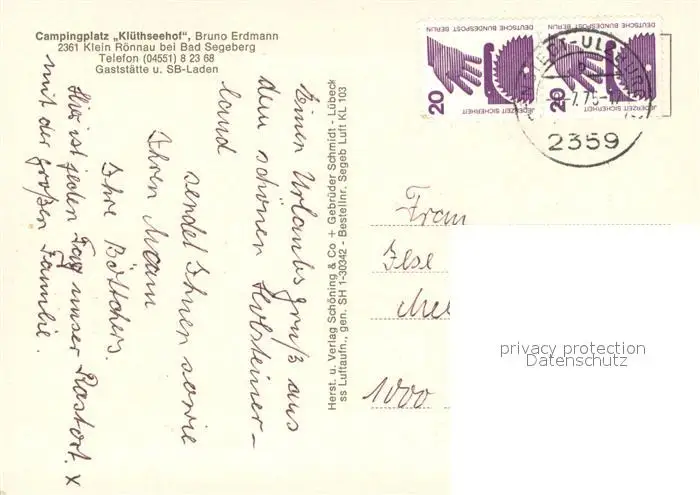 Campingplatz „Klüthseehof", Bruno Erdmann
2361 Klein Rönnau bei Bad Segeberg
Telefon (04551) 8 23 68
Gaststätte u. SB-Laden
Einen Urlaubsgruß aus
dem schönen Holsteiner-
land
sendet Ihnen sowie
Ihren Mann
Ihre Böttchers.
Hier ist jeden Tag unser Rastort. x
mit der großen Familie.
Herst. u. Verlag Schöning & Co + Gebrüder Schmidt - Lübeck
ss Luftaufn., gen. SH 1-30342 - Bestellnr. Segeb Luft KL 103
DEUTSCHE BUNDESPOST BERLIN
JEDERZEIT SICHERHEIT
20
DEUTSCHE BUNDESPOST BERLIN
JEDERZEIT SICHERHEIT
20
2359
Frau
Ilse
1000
privacy protection
Datenschutz